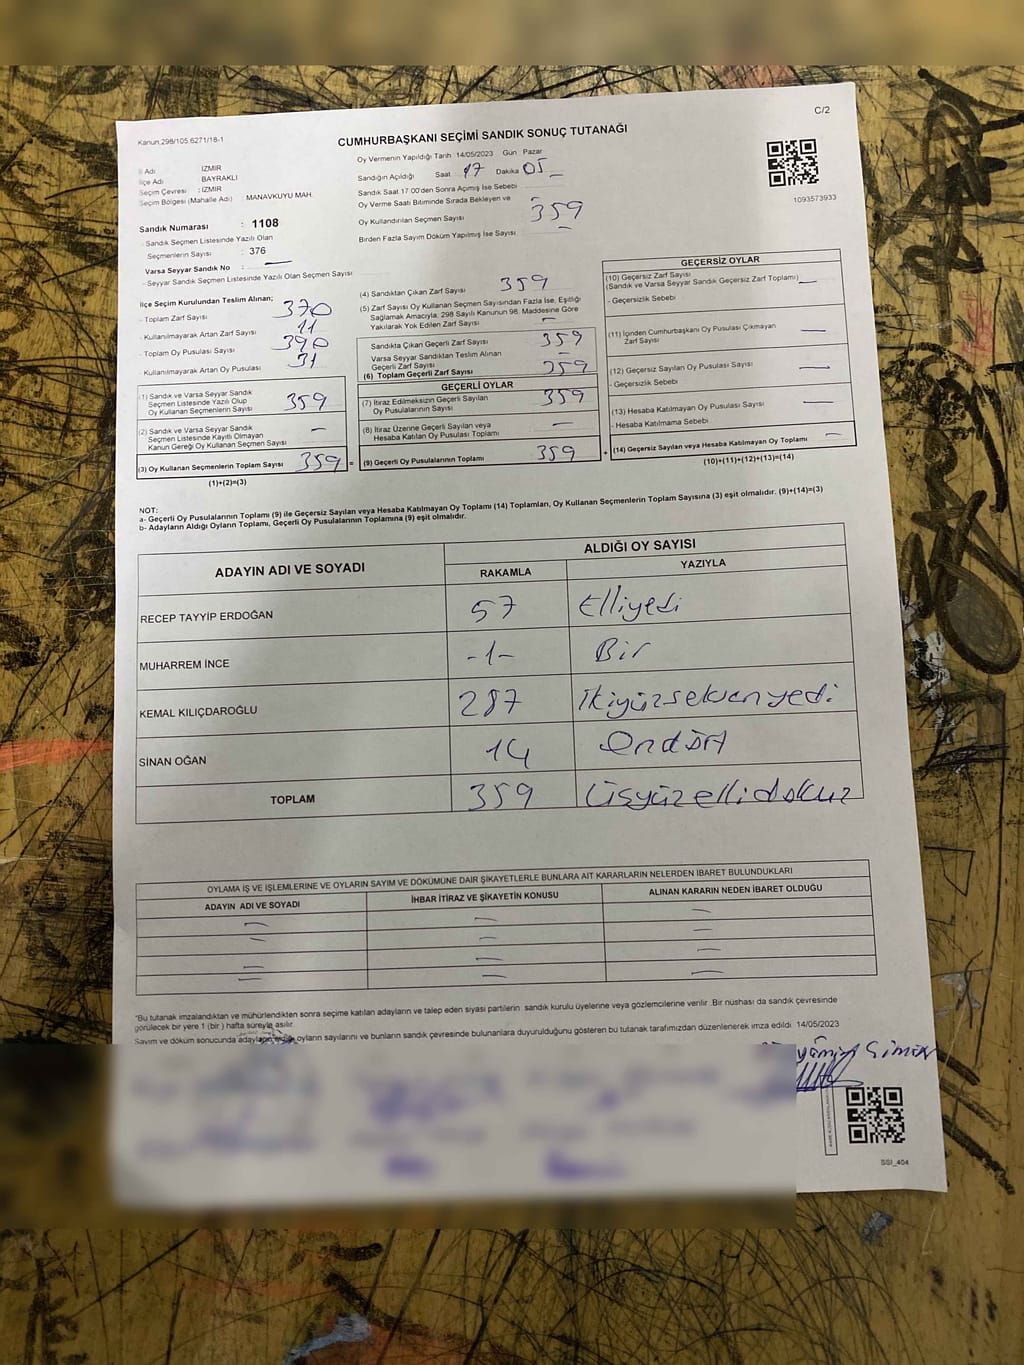 C/2
Kanun.298/105.6271/18-1
CUMHURBAŞKANI SEÇİMİ SANDIK SONUÇ TUTANAĞI
İl Adı İZMİR
İlçe Adı BAYRAKLI
Seçim Çevresi : İZMİR
Seçim Bölgesi (Mahalle Adı) MANAVKUYU MAH.
Sandık Numarası : 1108
- Sandık Seçmen Listesinde Yazılı Olan
Seçmenlerin Sayısı : 376
Varsa Seyyar Sandık No : —
- Seyyar Sandık Seçmen Listesinde Yazılı Olan Seçmen Sayısı
Oy Vermenin Yapıldığı Tarih :14/05/2023 Gün Pazar
Sandığın Açıldığı Saat 17 Dakika 05
Sandık Saat 17:00'den Sonra Açımış İse Sebebi
Oy Verme Saati Bitiminde Sırada Bekleyen ve
Oy Kullandırılan Seçmen Sayısı 359
Birden Fazla Sayım Döküm Yapılmış İse Sayısı —
1093573933
İlçe Seçim Kurulundan Teslim Alınan;
- Toplam Zarf Sayısı 370
- Kullanılmayarak Artan Zarf Sayısı 11
- Toplam Oy Pusulası Sayısı 390
- Kullanılmayarak Artan Oy Pusulası 31
(1) Sandık ve Varsa Seyyar Sandık
Seçmen Listesinde Yazılı Olup
Oy Kullanan Seçmenlerin Sayısı 359
(2) Sandık ve Varsa Seyyar Sandık
Seçmen Listesinde Kayıtlı Olmayan
Kanun Gereği Oy Kullanan Seçmen Sayısı —
(3) Oy Kullanan Seçmenlerin Toplam Sayısı 359 =
(1)+(2)=(3)
(4) Sandıktan Çıkan Zarf Sayısı 359
(5) Zarf Sayısı Oy Kullanan Seçmen Sayısından Fazla İse, Eşitliği
Sağlamak Amacıyla; 298 Sayılı Kanunun 98. Maddesine Göre
Yakılarak Yok Edilen Zarf Sayısı —
Sandıkta Çıkan Geçerli Zarf Sayısı 359
Varsa Seyyar Sandıktan Teslim Alınan
Geçerli Zarf Sayısı —
(6) Toplam Geçerli Zarf Sayısı 359
GEÇERLİ OYLAR
(7) İtiraz Edilmeksizin Geçerli Sayılan
Oy Pusulalarının Sayısı 359
(8) İtiraz Üzerine Geçerli Sayılan veya
Hesaba Katılan Oy Pusulası Toplamı —
(9) Geçerli Oy Pusulalarının Toplamı 359 +
GEÇERSİZ OYLAR
(10) Geçersiz Zarf Sayısı
(Sandık ve Varsa Seyyar Sandık Geçersiz Zarf Toplamı) —
- Geçersizlik Sebebi
(11) İçinden Cumhurbaşkanı Oy Pusulası Çıkmayan
Zarf Sayısı —
(12) Geçersiz Sayılan Oy Pusulası Sayısı —
- Geçersizlik Sebebi
(13) Hesaba Katılmayan Oy Pusulası Sayısı —
- Hesaba Katılmama Sebebi
(14) Geçersiz Sayılan veya Hesaba Katılmayan Oy Toplamı —
(10)+(11)+(12)+(13)=(14)
NOT:
a- Geçerli Oy Pusulalarının Toplamı (9) ile Geçersiz Sayılan veya Hesaba Katılmayan Oy Toplamı (14) Toplamları, Oy Kullanan Seçmenlerin Toplam Sayısına (3) eşit olmalıdır. (9)+(14)=(3)
b- Adayların Aldığı Oyların Toplamı, Geçerli Oy Pusulalarının Toplamına (9) eşit olmalıdır.
ADAYIN ADI VE SOYADI ALDIĞI OY SAYISI
RAKAMLA YAZIYLA
RECEP TAYYİP ERDOĞAN 57 Elliyedi
MUHARREM İNCE -1- Bir
KEMAL KILIÇDAROĞLU 287 İkiyüzseksenyedi
SİNAN OĞAN 14 Ondört
TOPLAM 359 Üçyüzellidokuz
OYLAMA İŞ VE İŞLEMLERİNE VE OYLARIN SAYIM VE DÖKÜMÜNE DAİR ŞİKAYETLERLE BUNLARA AİT KARARLARIN NELERDEN İBARET BULUNDUKLARI
ADAYIN ADI VE SOYADI İHBAR İTİRAZ VE ŞİKAYETİN KONUSU ALINAN KARARIN NEDEN İBARET OLDUĞU
— — —
— — —
— — —
— — —
*Bu tutanak imzalandıktan ve mühürlendikten sonra seçime katılan adayların ve talep eden siyasi partilerin sandık kurulu üyelerine veya gözlemcilerine verilir .Bir nüshası da sandık çevresinde
görülecek bir yere 1 (bir ) hafta süreyle asılır.
Sayım ve döküm sonucunda adayların aldığı oyların sayılarını ve bunların sandık çevresinde bulunanlara duyurulduğunu gösteren bu tutanak tarafımızdan düzenlenerek imza edildi. 14/05/2023
SSI_404